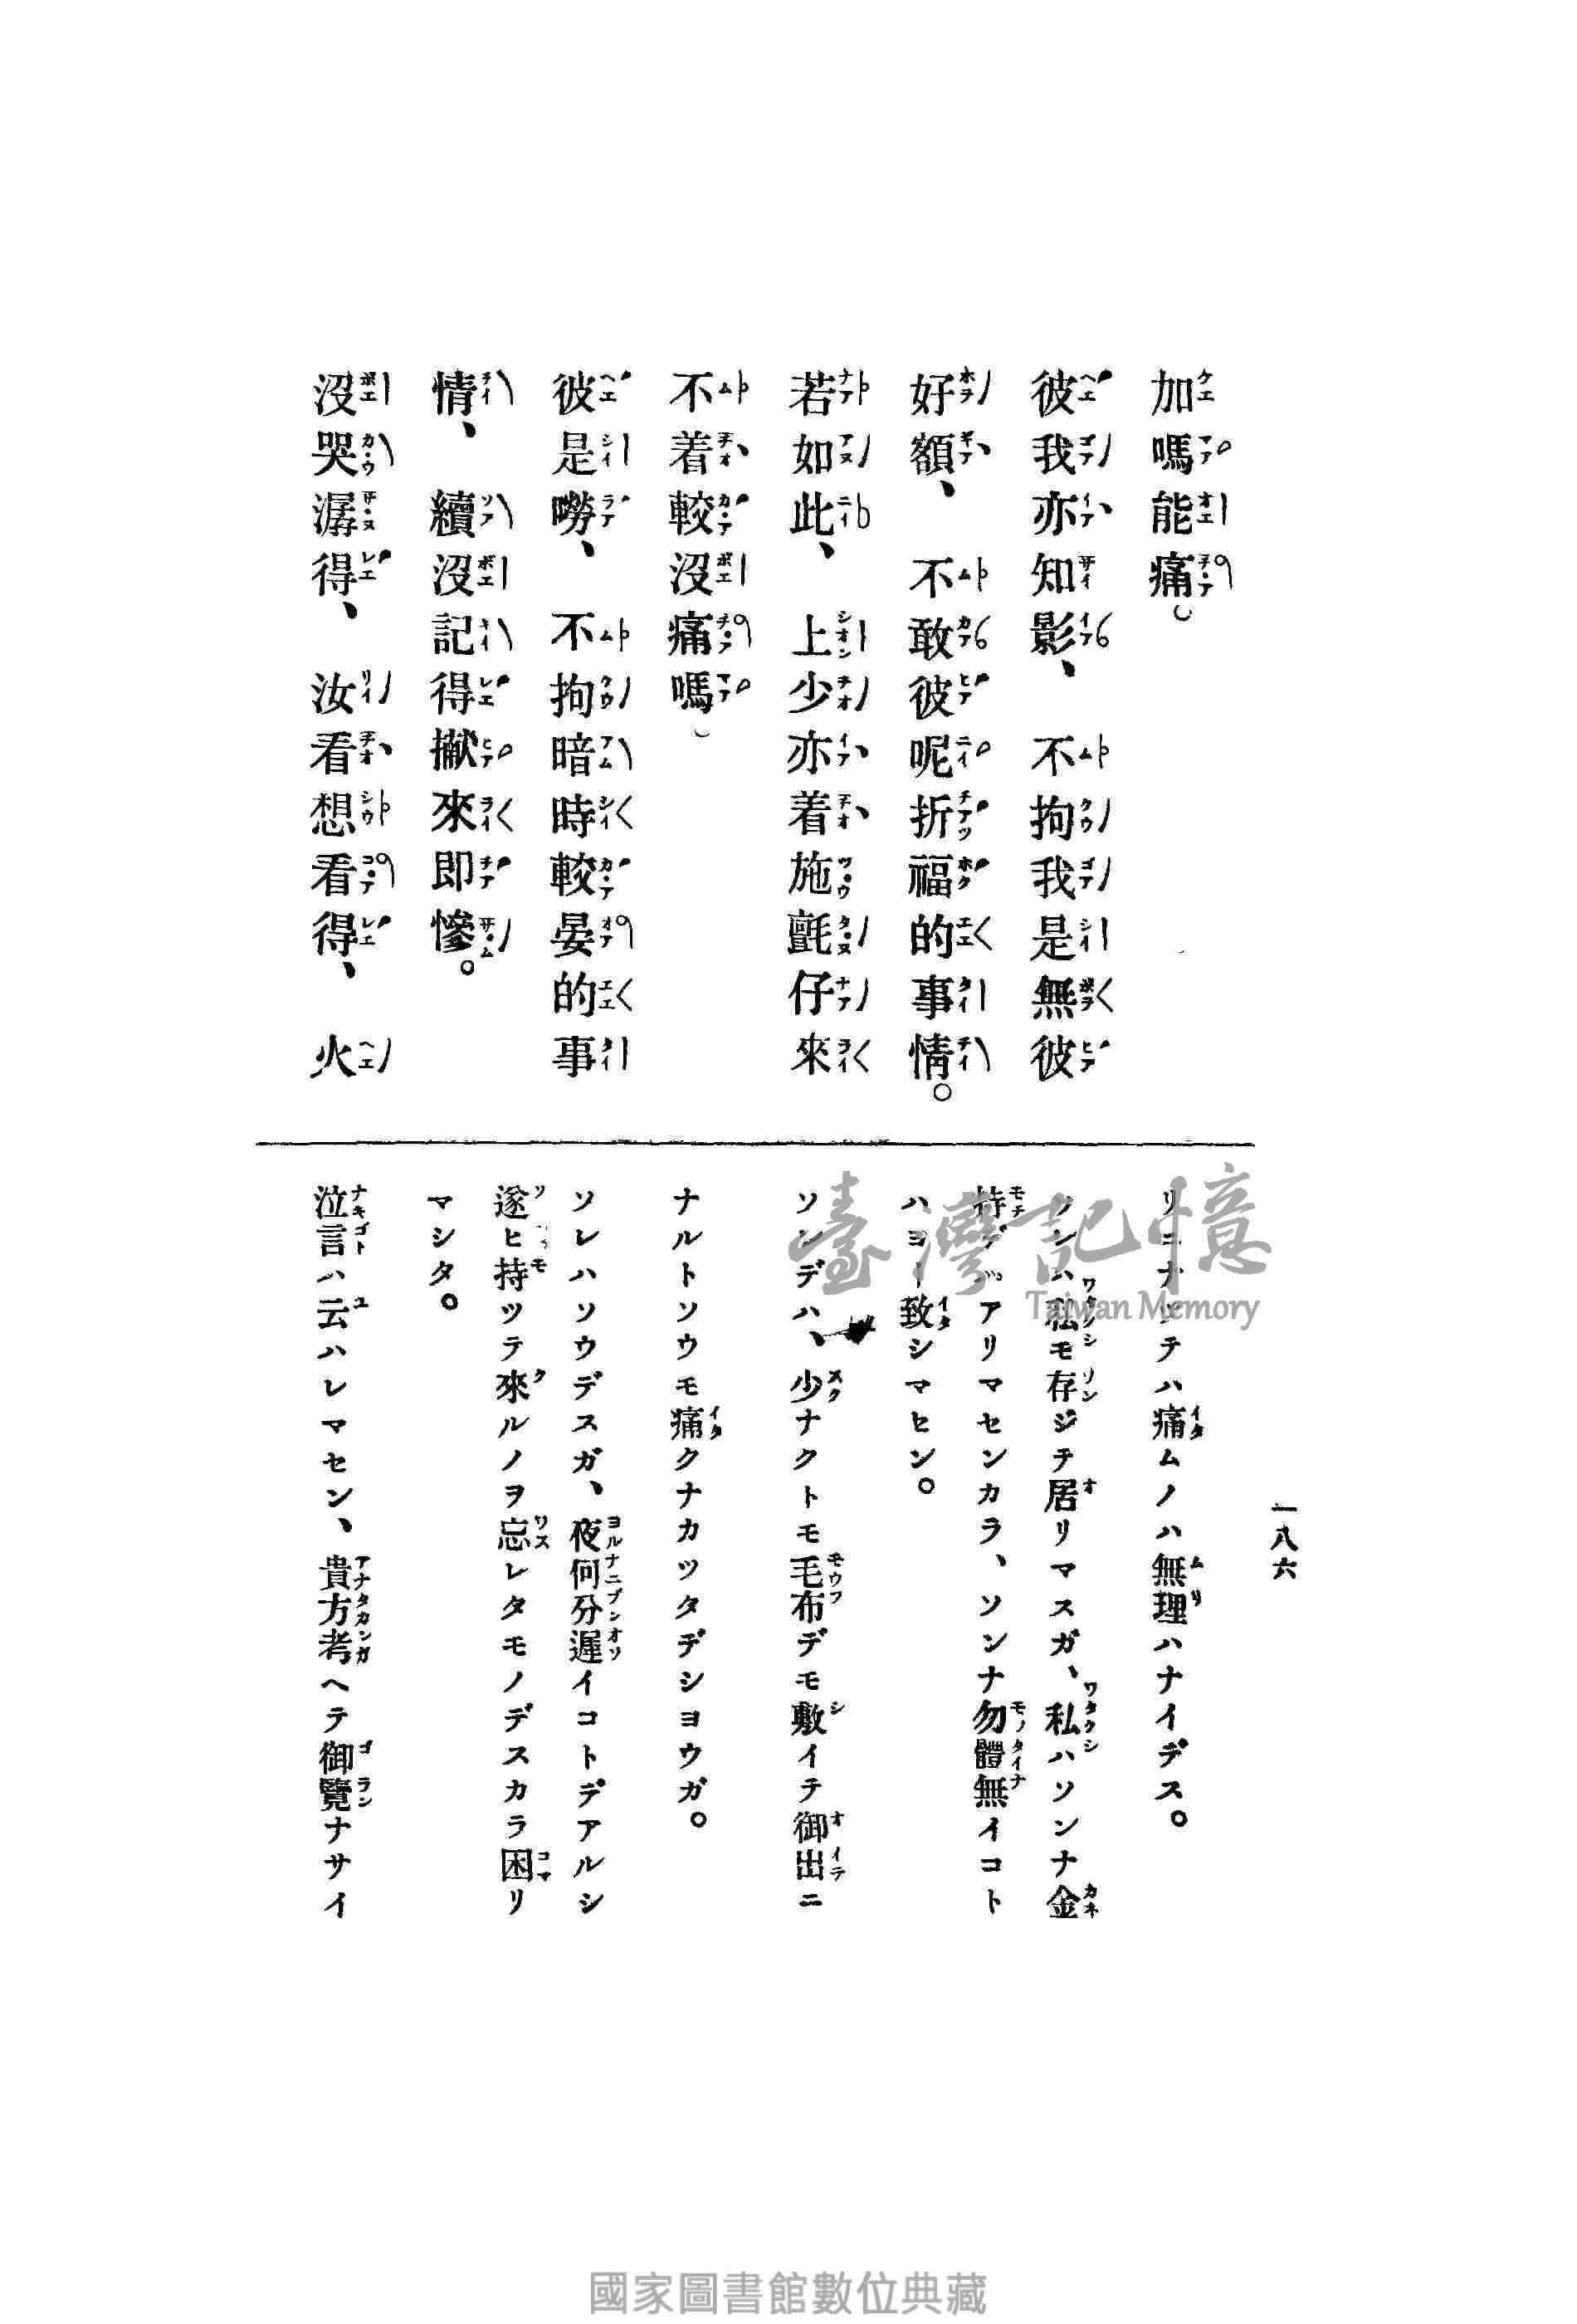 加嗎能痛。
彼我亦知影、不拘我是無彼
好額、不敢彼呢折福的事情。
若如此、上少亦着施氈仔來
不着較沒痛嗎。
彼是嘮、不拘暗時較晏的事
情、續沒記得揿來即慘。
沒哭潺得、汝看想看得、火
一八六
リニナツテハ痛ムノハ無理ハナイデス。
ソンハ私モ存ジテ居リマスガ、私ハソンナ金
持デハアリマセンカラ、ソンナ勿體無イコト
ハヨー致シマヒン。
ソンデハ、少ナクトモ毛布デモ敷イテ御出ニ
ナルトソウモ痛クナカツタヂシヨウガ。
ソレハソウデスガ、夜何分遲イコトデアルシ
遂ヒ持ツテ來ルノヲ忘レタモノデスカラ困リ
マシタ。
泣言ハ云ハレマセン、貴方考ヘテ御覽ナサイ
臺灣記憶
Taiwan Memory
國家圖書館數位典藏